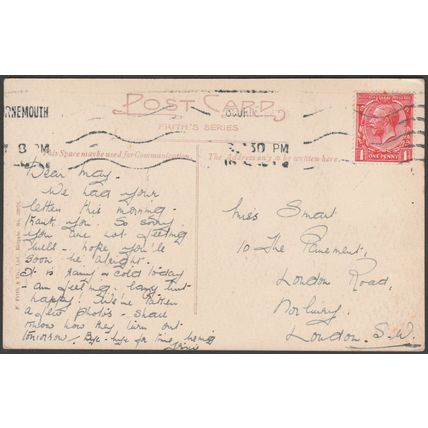 POST CARD
FRITH'S SERIES
This Space may be used for Communication.
The Address only to be written here.
RNEMOUTH
BOURN
8 PM
30 PM
ONE PENNY
Dear May.
We had your
letter this morning.
Thank you. So sorry
you are not feeling
well - hope you'll
soon be alright.
It is rainy & cold today
I am feeling lazy but
happy! We've taken
a few photo's - shall
know how they turn out
tomorrow. Bye-bye for this time
Miss Smart
10 The Pavement,
London Road,
Norbury,
London. S.W.